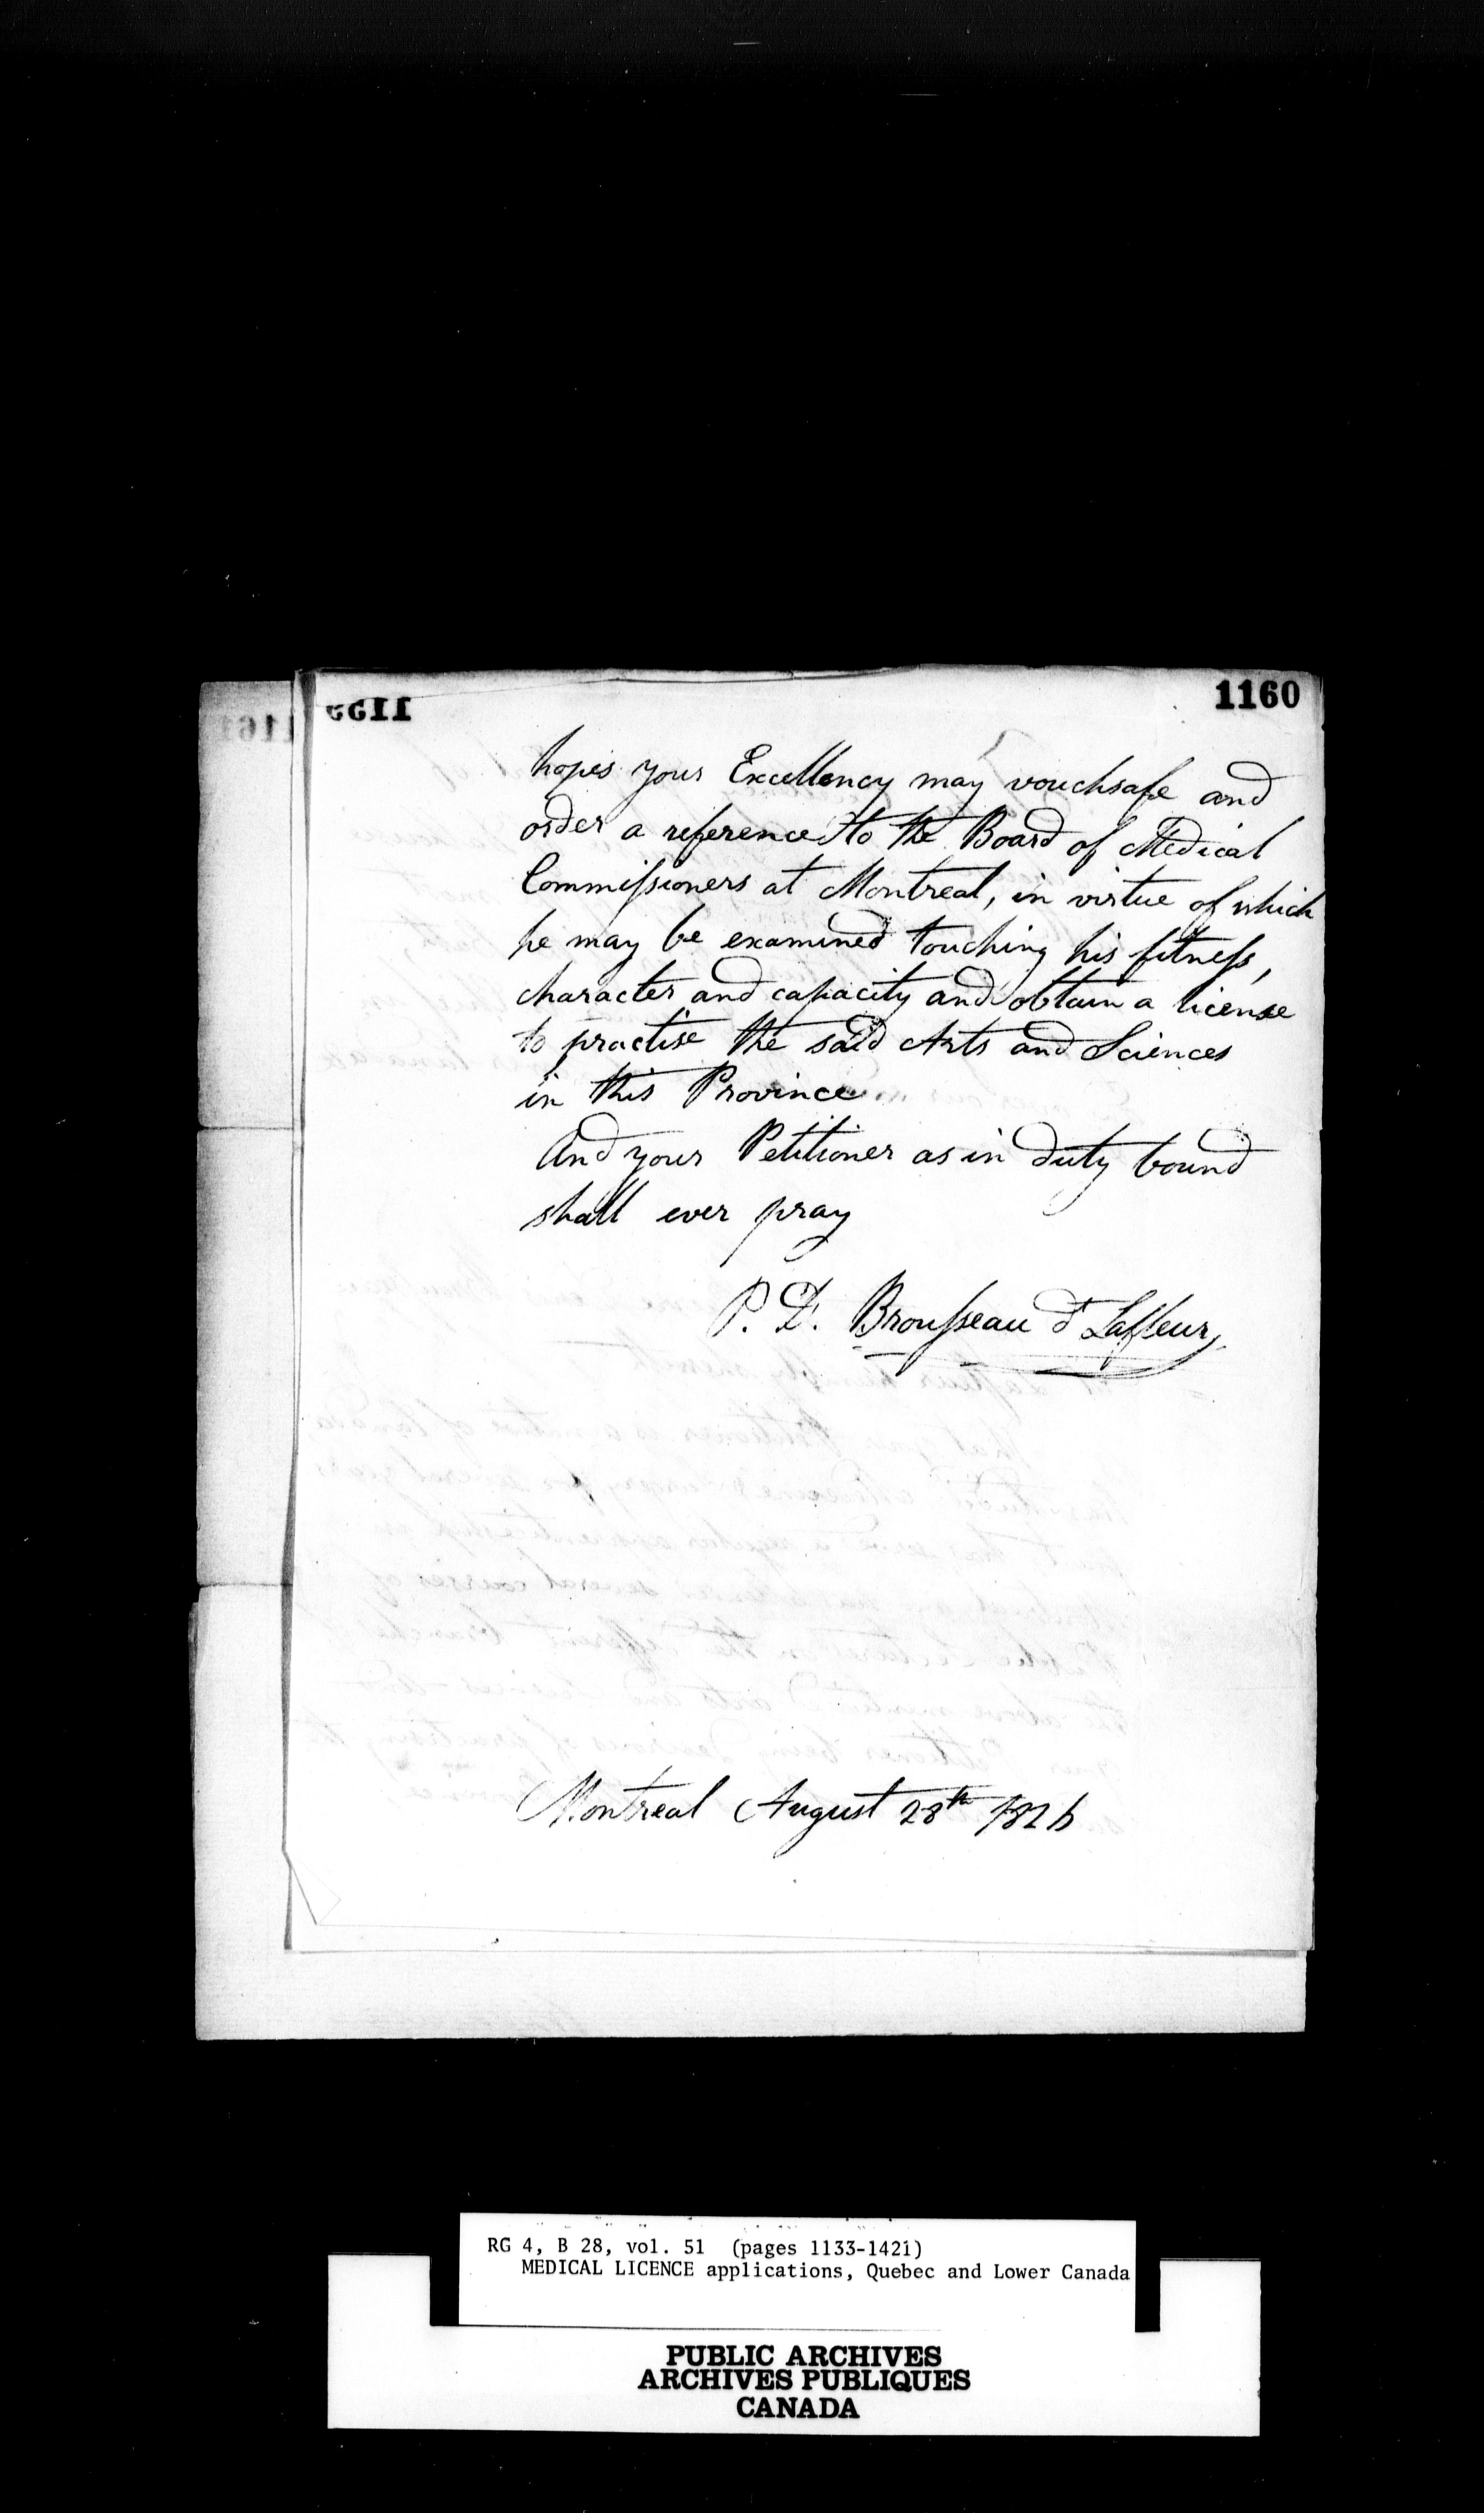 1160
hopes your Excellency may vouchsafe and
order a reference to the Board of Medical
Commissioners at Montreal, in virtue of which
he may be examined touching his fitness,
character and capacity and obtain a license
to practise the said Arts and Sciences
in this Province
And your Petitioner as in duty bound
shall ever pray
P. D. Brousseau dt Lafleur,
Montreal August 28th 1826
RG 4, B 28, vol. 51 (pages 1133-1421)
MEDICAL LICENCE applications, Quebec and Lower Canada
PUBLIC ARCHIVES
ARCHIVES PUBLIQUES
CANADA